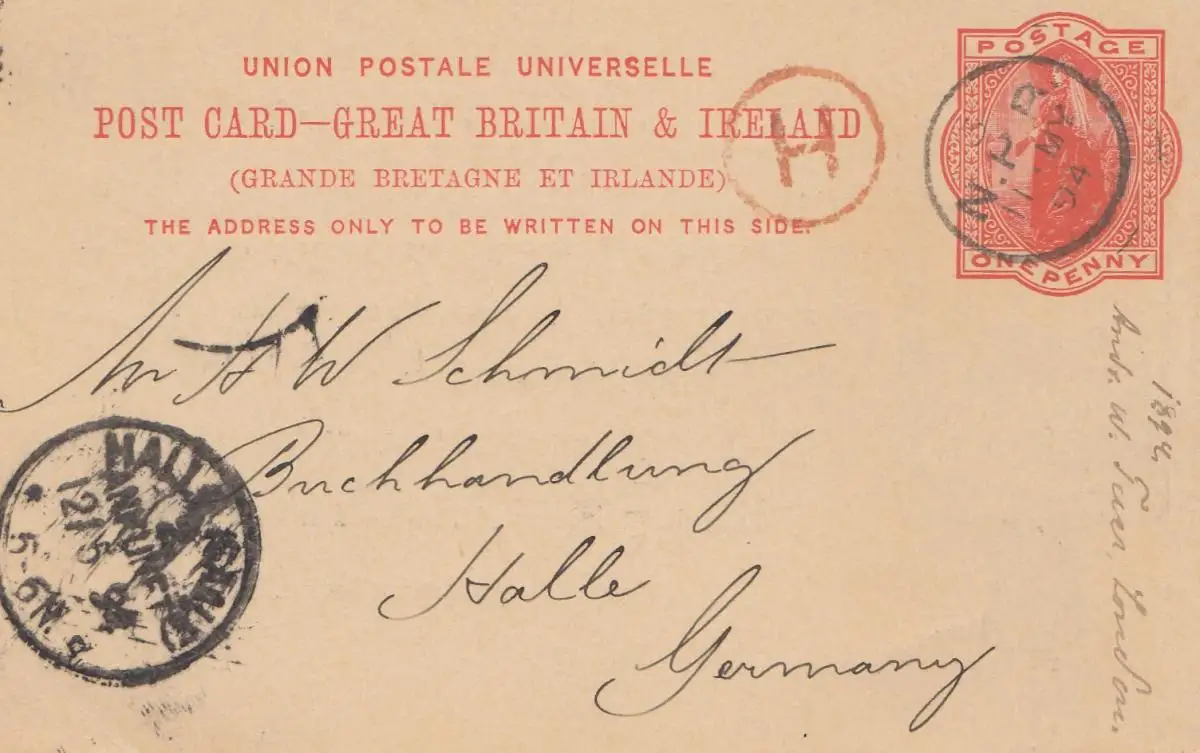 UNION POSTALE UNIVERSELLE
POST CARD—GREAT BRITAIN & IRELAND
(GRANDE BRETAGNE ET IRLANDE)
THE ADDRESS ONLY TO BE WRITTEN ON THIS SIDE.
H
POSTAGE
ONE PENNY
N.P.B.
MY
94
Mr H W Schmidt
Buchhandlung
Halle
Germany
HALLE (SAALE)
12/5
5-6 N.
1894.
Andr. W. Tuer, London.